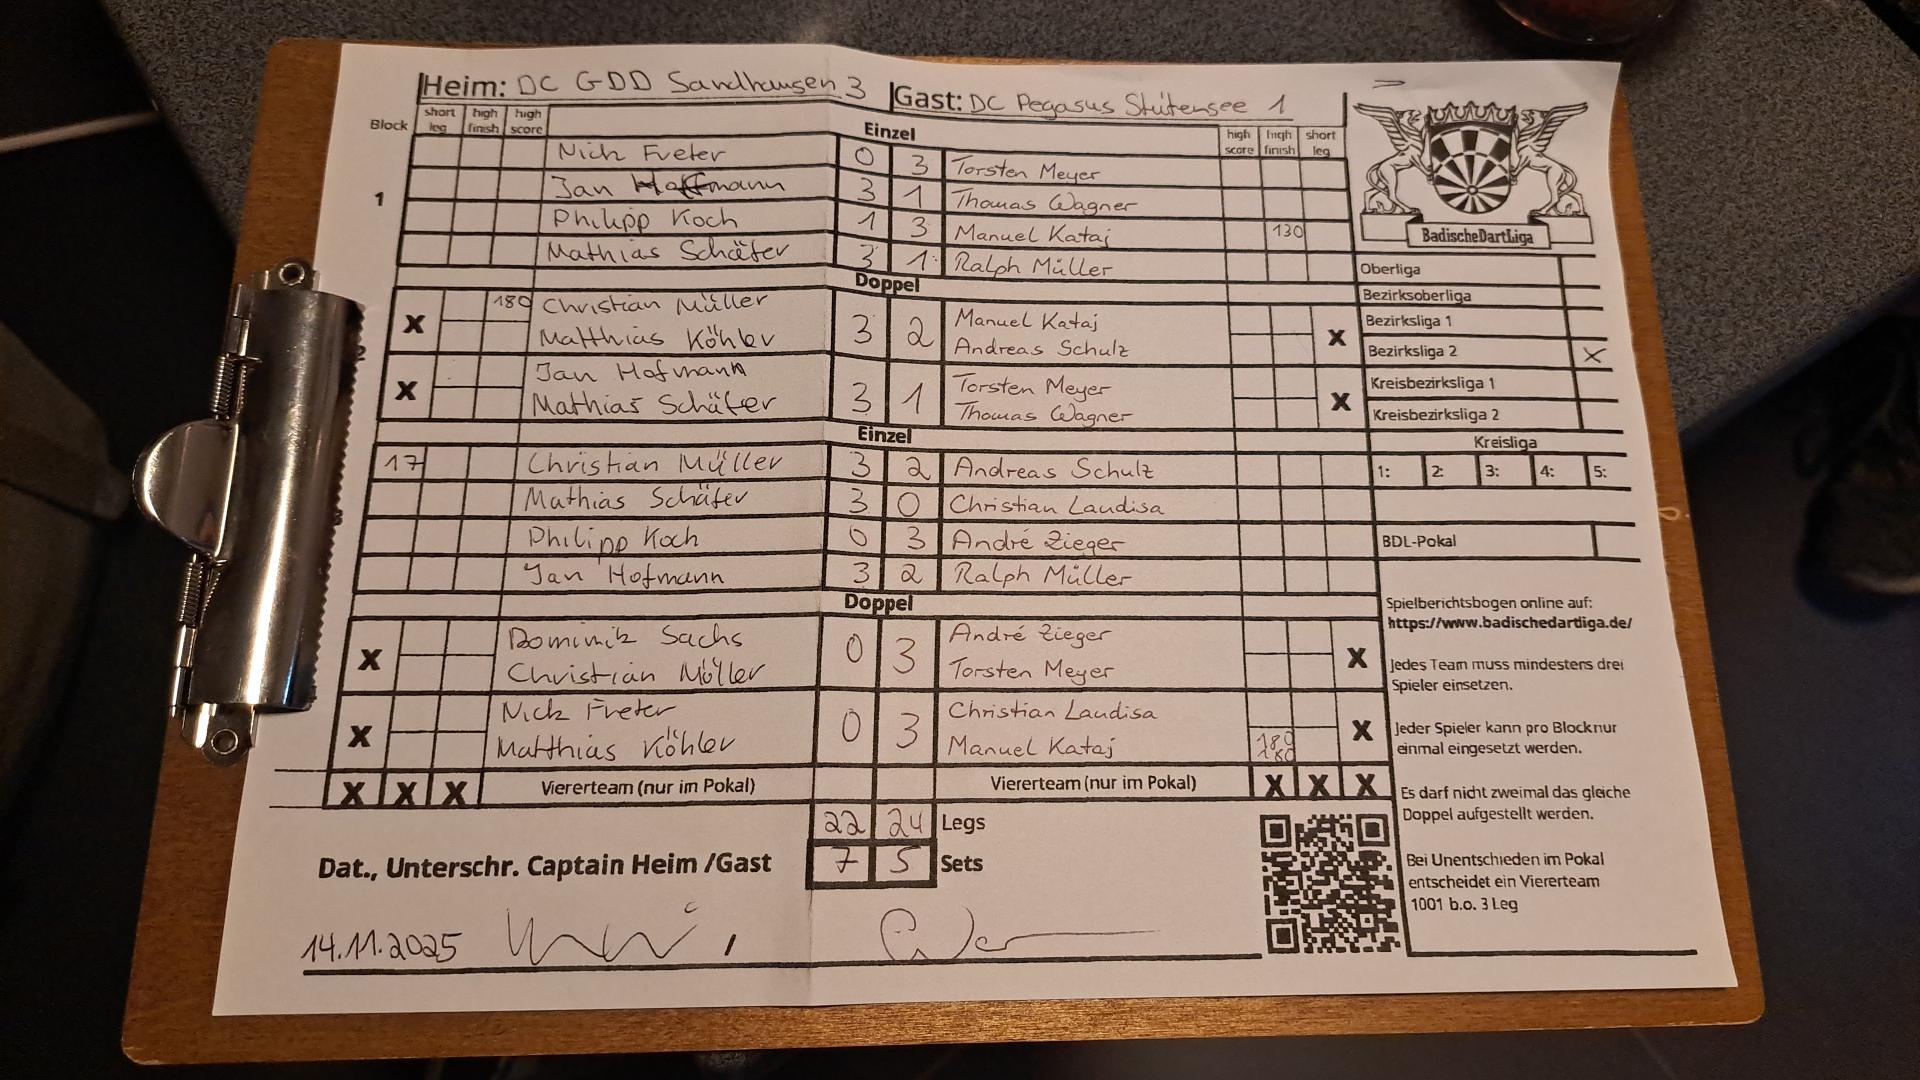 Heim: DC GDD Sandhausen 3 Gast: DC Pegasus Stutensee 1
Block short leg high finish high score Einzel high score high finish short leg
Nick Freter 0 3 Torsten Meyer
1 Jan Hoffmann 3 1 Thomas Wagner
Philipp Koch 1 3 Manuel Kataj 130
Mathias Schäfer 3 1 Ralph Müller
Doppel
180 Christian Müller Manuel Kataj
X 3 2 X
Matthias Köhler Andreas Schulz
Jan Hofmann Torsten Meyer
X 3 1 X
Mathias Schäfer Thomas Wagner
Einzel
17 Christian Müller 3 2 Andreas Schulz
Mathias Schäfer 3 0 Christian Laudisa
Philipp Koch 0 3 André Zieger
Jan Hofmann 3 2 Ralph Müller
Doppel
Dominik Sachs André Zieger
X 0 3 X
Christian Müller Torsten Meyer
Nick Freter Christian Laudisa
X 0 3 X
Matthias Köhler Manuel Kataj 180
180
X X X Viererteam (nur im Pokal) Viererteam (nur im Pokal) X X X
22 24 Legs
Dat., Unterschr. Captain Heim /Gast 7 5 Sets
14.11.2025
BadischeDartLiga
Oberliga
Bezirksoberliga
Bezirksliga 1
Bezirksliga 2 X
Kreisbezirksliga 1
Kreisbezirksliga 2
Kreisliga
1: 2: 3: 4: 5:
BDL-Pokal
Spielberichtsbogen online auf:
https://www.badischedartliga.de/
Jedes Team muss mindestens drei
Spieler einsetzen.
Jeder Spieler kann pro Block nur
einmal eingesetzt werden.
Es darf nicht zweimal das gleiche
Doppel aufgestellt werden.
Bei Unentschieden im Pokal
entscheidet ein Viererteam
1001 b.o. 3 Leg